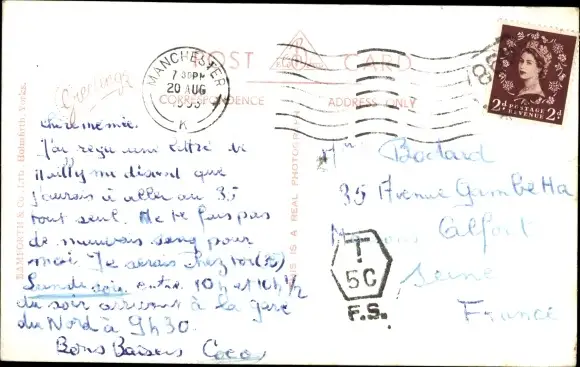 POST CARD
CORRESPONDENCE
ADDRESS ONLY
Greetings
BAMFORTH & CO., LTD. Holmfirth, Yorks.
THIS IS A REAL PHOTOGRAPH
MANCHESTER
7 30PM
20 AUG
K
2D POSTAGE REVENUE 2D
chère mémée.
J'ai reçu une lettre de
Mailly me disant que
j'aurais à aller au 35
tout seul. Ne te fais pas
de mauvais sang pour
moi. Je serais chez toi (35)
Lundi soir entre 10h et 10h 1/2
du soir arrivant à la gare
du Nord à 9h30.
Bons Baisers Coco
Bodard
35 Avenue Gambetta
Maisons Alfort
Seine
France
T
5C
F.S.